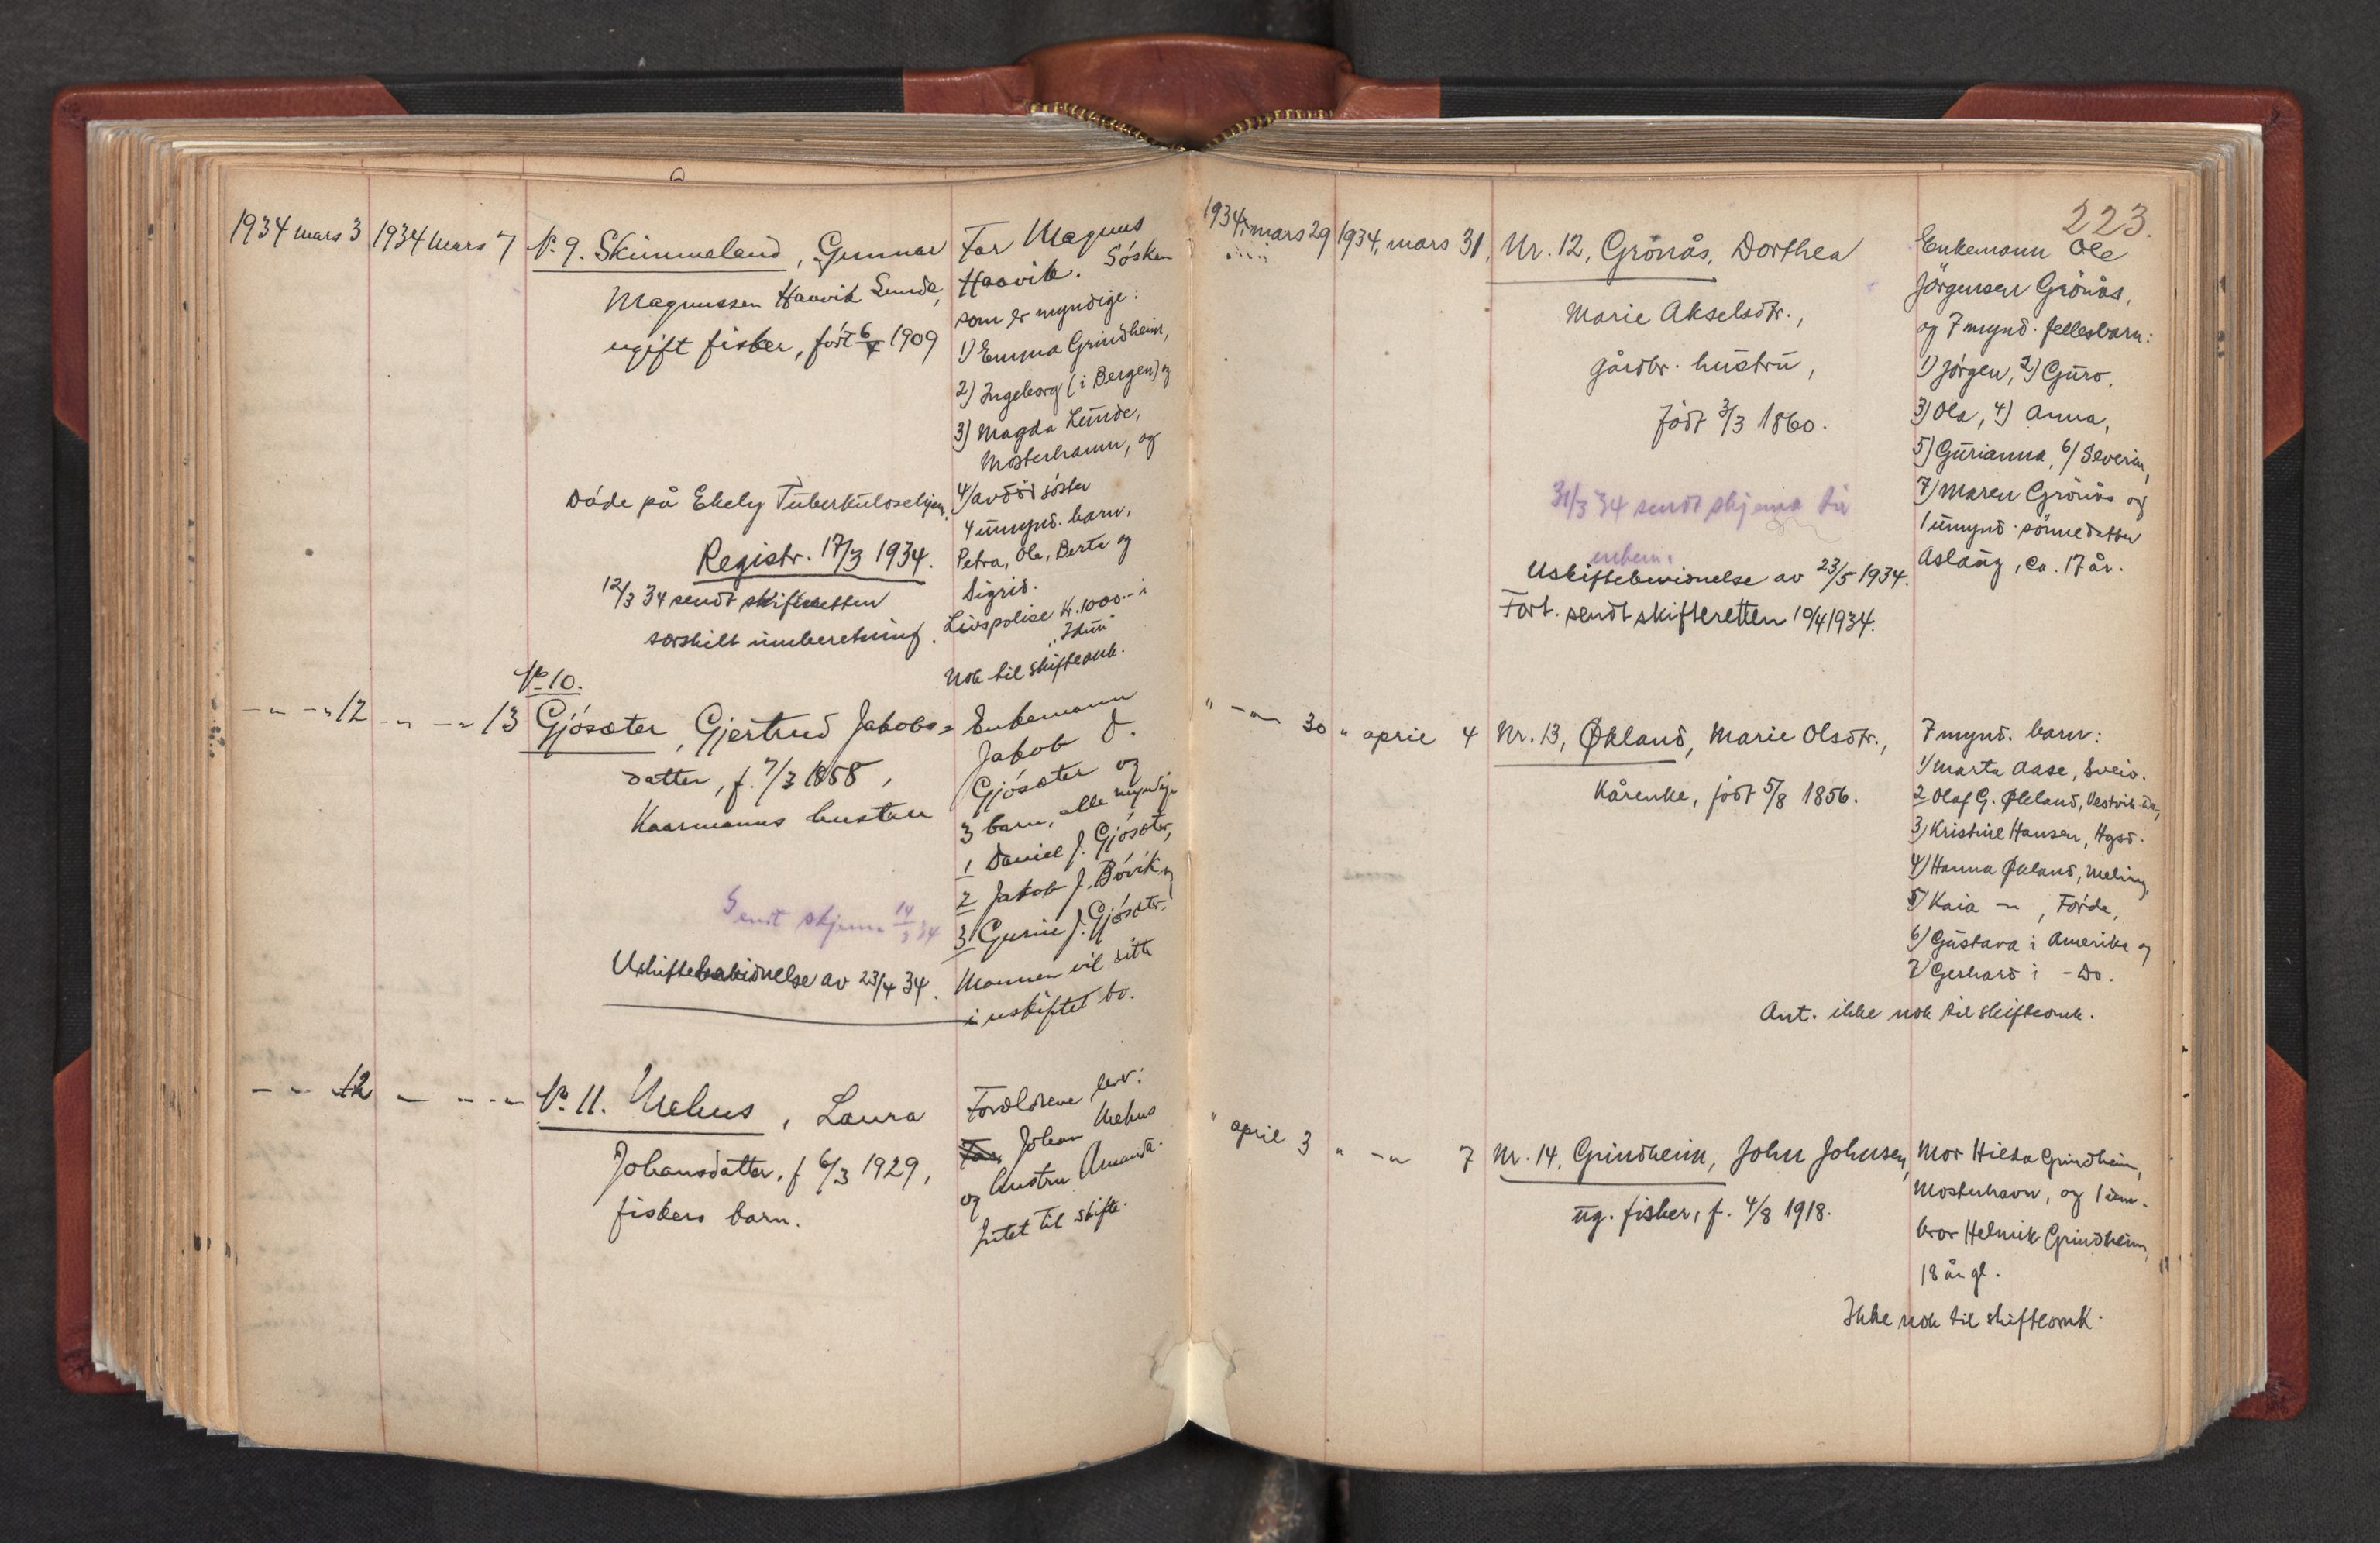 1934 mars 3 1934 mars 7 No. 9. Skimmeland, Gunnar
Magnussen Haavik Lunde,
ugift fisker, født 6/4 1909
Døde på Ekely Tuberkulosehjem.
Registr. 17/3 1934.
12/3 34 sendt skifteretten
særskilt innberetning.
Far Magnus
Haavik. Søsken
som er myndige:
1) Emma Grindheim,
2) Ingeborg (i Bergen) og
3) Magda Lunde,
Mosterhamn, og
4) avdød søster
4 umynd. barn,
Petra, Ola, Berta og
Sigrid.
Livspolise K. 1000.- i
"Idun"
Nok til skifteomk.
No 10.
-"- -"- 12 -"- -"- 13 Gjøsæter, Gjertrud Jakobs=
datter, f. 7/3 1858,
Kaarmanns hustru
Sendt skjema 14/3 34
Uskiftebevidnelse av 23/4 34.
Enkemann
Jakob J.
Gjøsæter og
3 barn, alle myndige
1 Daniel J. Gjøsæter,
2 Jakob J. Bøvik og
3 Gurine J. Gjøsæter.
Mannen vil sitte
i uskiftet bo.
-"- 12 -"- -"- No. 11. Uehus, Laura
Johansdatter, f 6/3 1929,
fiskers barn.
Foreldrene lever:
Far Johan Uehus
og hustru Amanda.
Intet til skifte.
223.
1934, mars 29 1934, mars 31, Nr. 12, Grönås, Dorthea
Marie Akselsdtr.,
gårdbr. hustru,
født 3/3 1860.
31/3 34 sendt skjema til
enkem.
Uskiftebevidnelse av 23/5 1934.
Fort. sendt skifteretten 10/4 1934.
Enkemann Ole
Jörgensen Grönås,
og 7 mynd. fellesbarn:
1) Jörgen, 2) Guro,
3) Ola, 4) Anna,
5) Gurianna, 6) Severin,
7) Maren Grönås og
1 umynd. sönnedatter
Aslaug, ca. 17 år.
" -"- 30 " april 4 Nr. 13, Økland, Marie Olsdtr.,
Kårenke, født 5/8 1856.
7 mynd. barn:
1) Marta Aase, Sveio.
2 Olaf G. Økland, Vestvik
3) Kristine Hansen, Hgsd.
4) Hanna Økland, Meling,
5) Kaia -"-, Førde,
6) Gustava i Amerika og
7) Gerhard i - Do.
Ant. ikke nok til skifteomk.
" april 3 " -"- 7 Nr. 14, Grindheim, John Johnsen,
ug. fisker, f. 4/8 1918.
Mor Hilda Grindheim,
Mosterhavn, og 1 um.
bror Helmik Grindheim,
18 år gl.
Ikke nok til skifteomk.